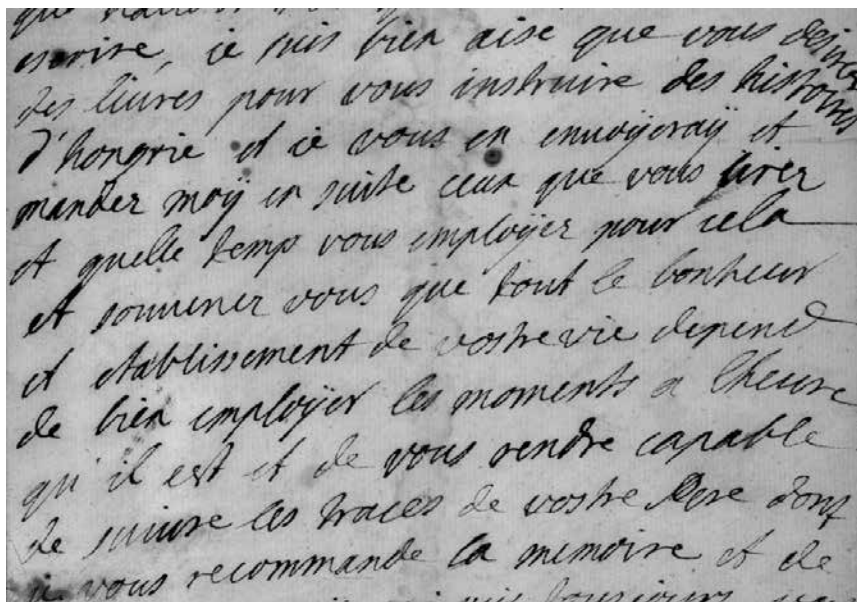 escrire, ie suis bien aise que vous desirer
des liures pour vous instruire des histoires
d'hongrie et ie vous en envoÿeraÿ et
mander moÿ en suite ceux que vous lirer
et quelle temp vous emploÿer pour cela
et souuener vous que tout le bonheur
et etablissement de vostre vie depend
de bien emploÿer les moments a lheure
qu'il est et de vous rendre capable
de suiure les traces de vostre Pere dont
ie vous recommande la memoire et de